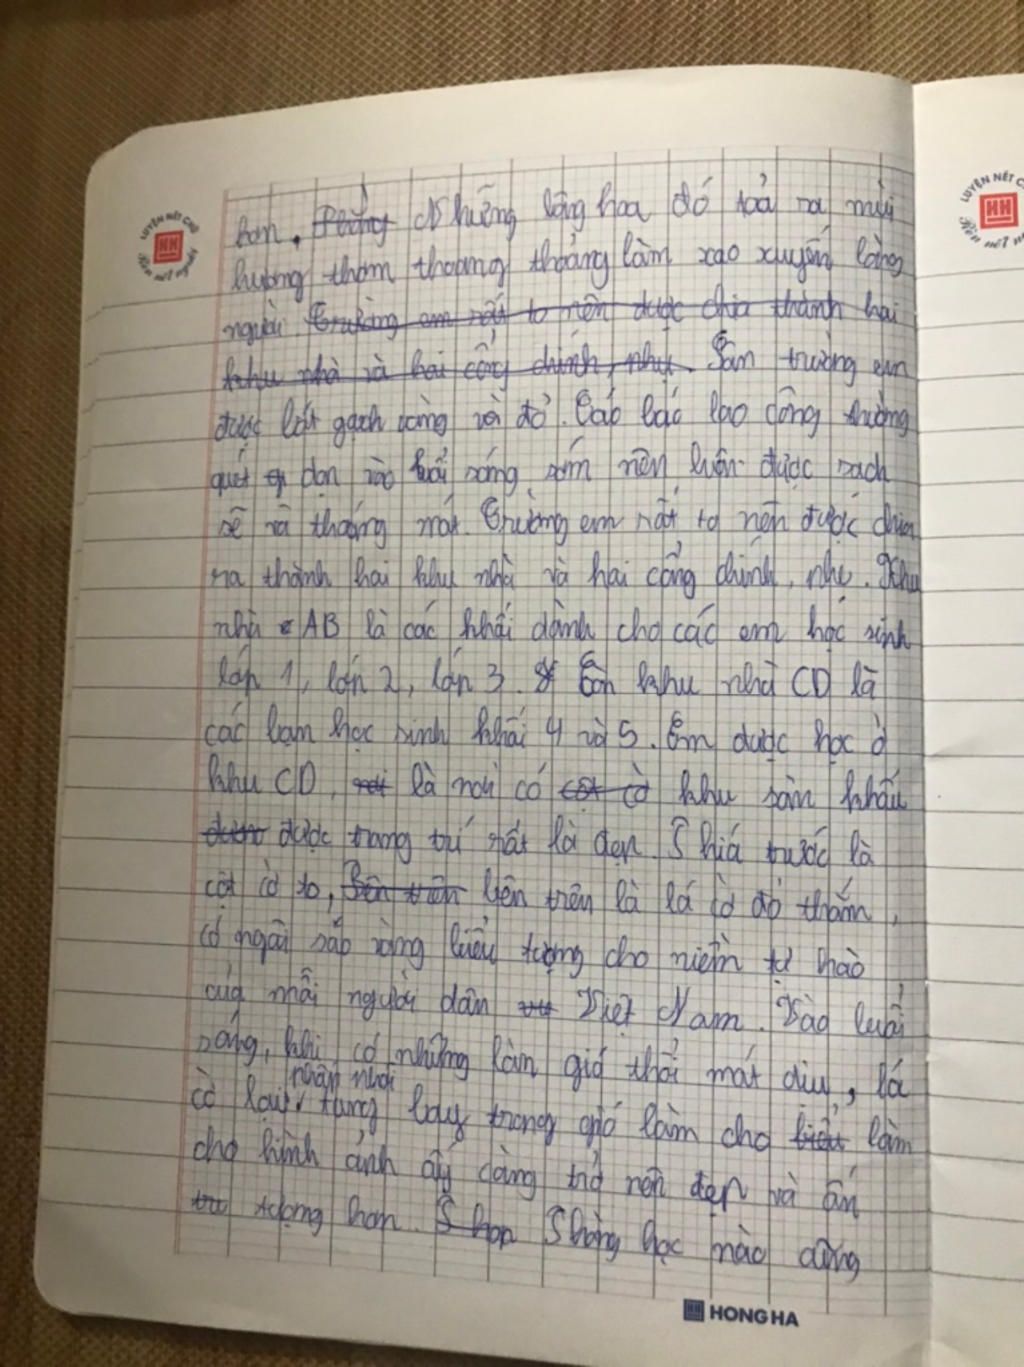 LUYỆN NÉT CHỮ
HH
Rèn nết người
LUYỆN NÉT
HH
Rèn nết
hơn. Những bông hoa đó toả ra mùi
hương thơm thoang thoảng làm xao xuyến lòng
người. Trường em rất to nên được chia thành hai
khu nhà và hai cổng chính, phụ. Sân trường em
được lát gạch vàng và đỏ. Các bác lao công thường
quét dọn vào buổi sáng sớm nên luôn được sạch
sẽ và thoáng mát. Trường em rất to nên được chia
ra thành hai khu nhà và hai cổng chính, phụ. Khu
nhà AB là các khối dành cho các em học sinh
lớp 1, lớp 2, lớp 3. Còn khu nhà CD là
các bạn học sinh khối 4 và 5. Em được học ở
khu CD, là nơi có cột cờ khu sân khấu
được trang trí rất là đẹp. Phía trước là
cột cờ to, Bên trên bên trên là lá cờ đỏ thắm,
có ngôi sao vàng biểu tượng cho niềm tự hào
của mỗi người dân Việt Nam. Vào buổi
sáng, khi có những làn gió thổi mát dịu, lá
cờ lại nhấp nhô tung bay trong gió làm cho làm
cho hình ảnh ấy càng trở nên đẹp và ấn
tượng hơn. Phòng học nào cũng
HH HONG HA